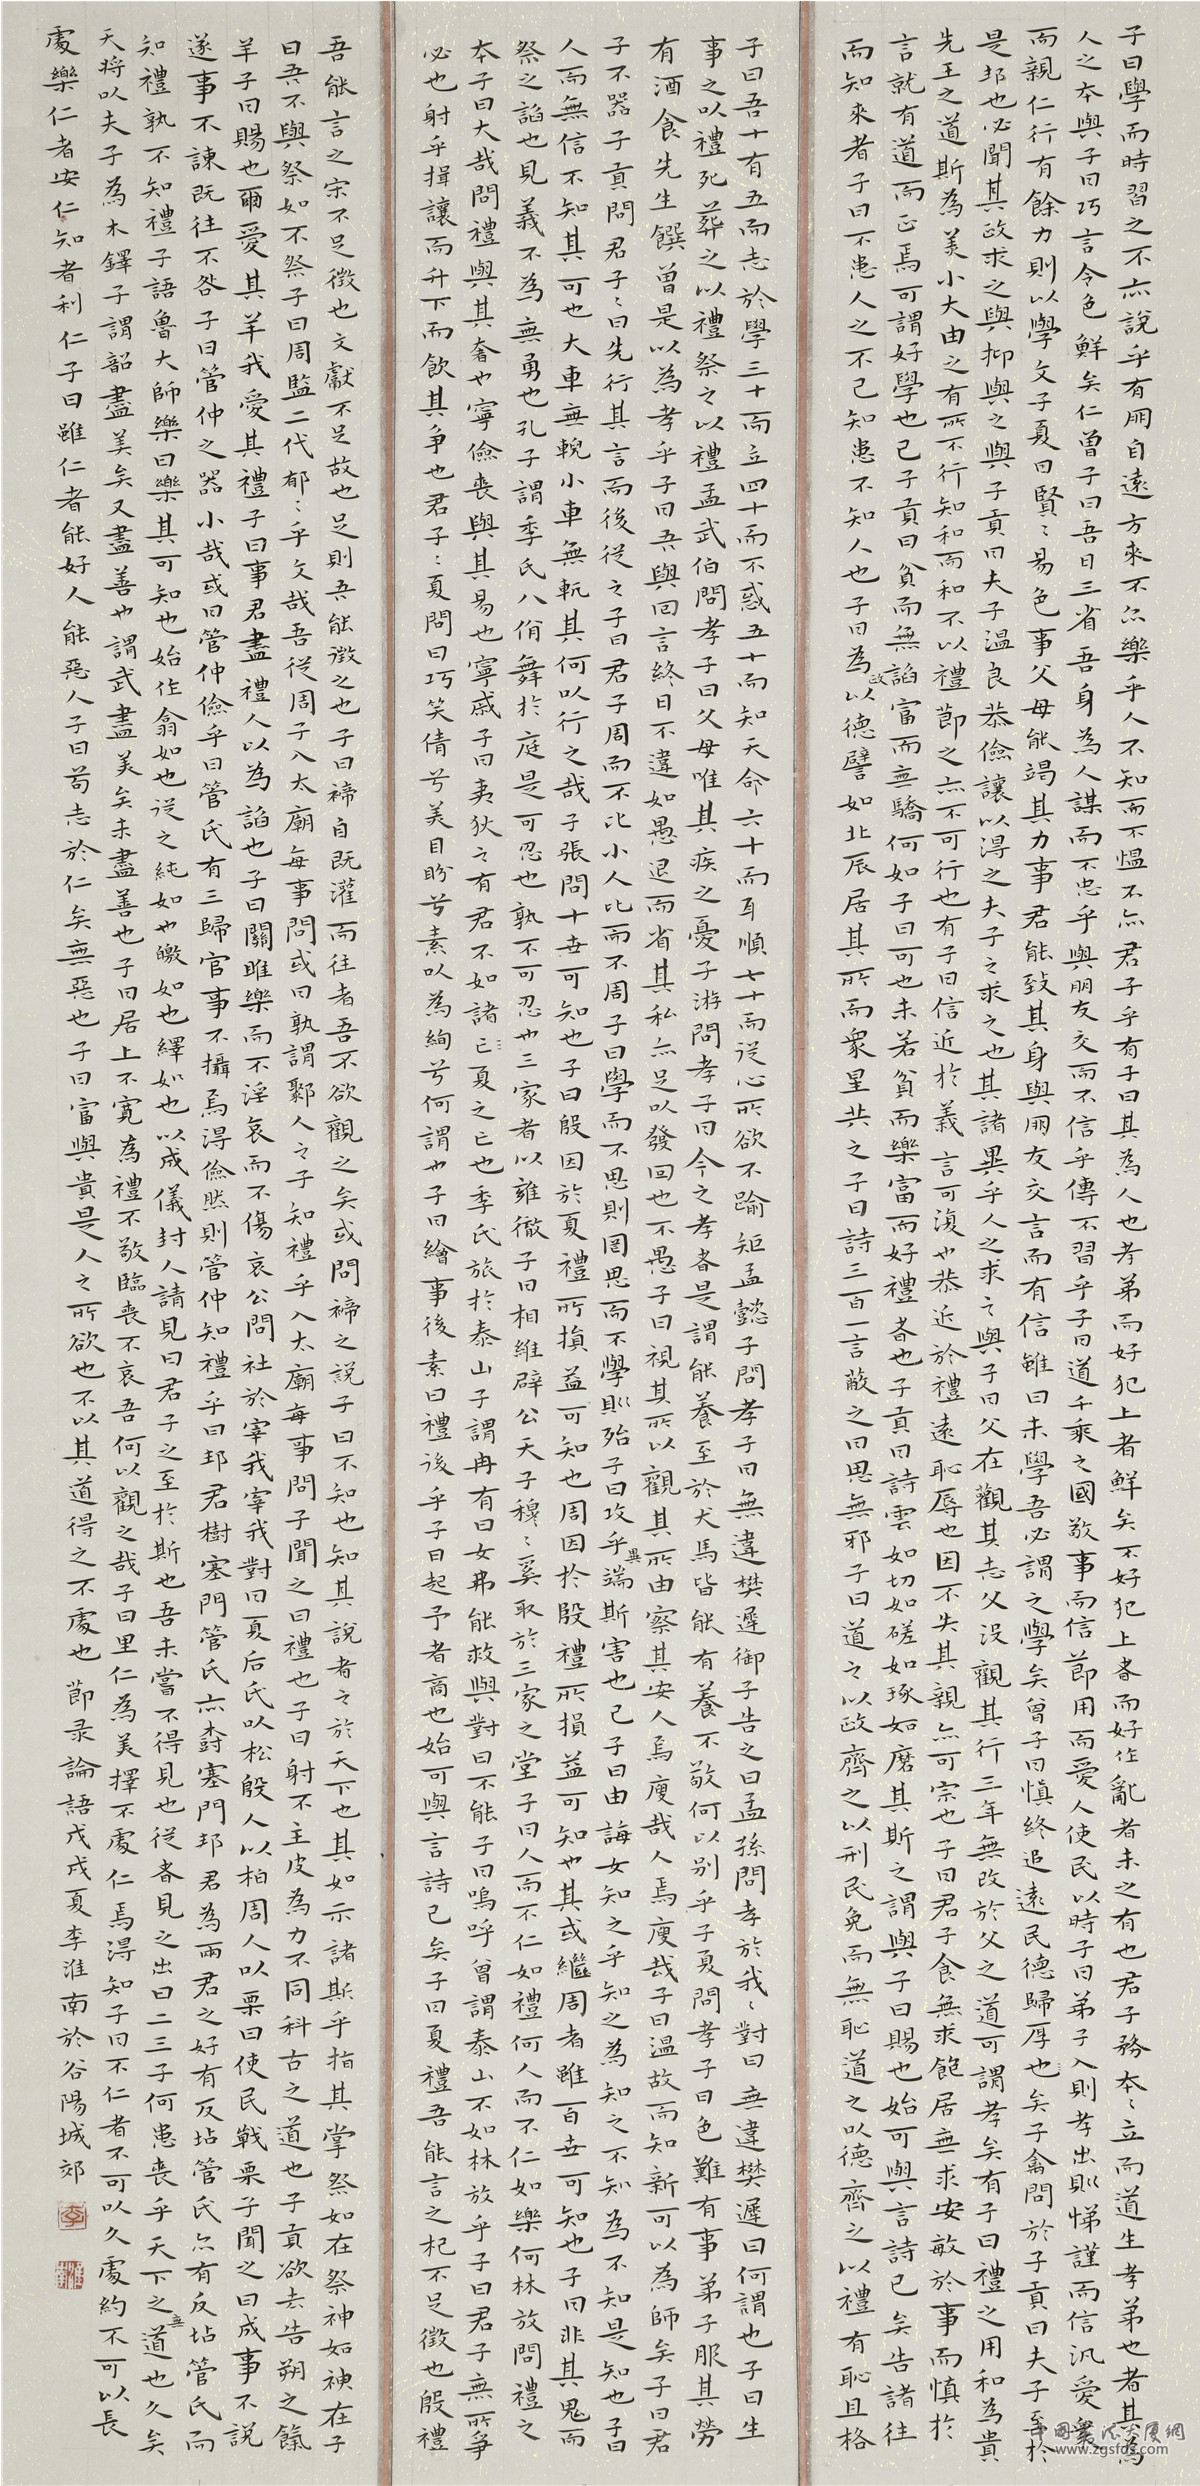 子曰學而時習之不亦說乎有朋自遠方來不亦樂乎人不知而不慍不亦君子乎有子曰其為人也孝弟而好犯上者鮮矣不好犯上者而好作亂者未之有也君子務本〻立而道生孝弟也者其為
人之本與子曰巧言令色鮮矣仁曾子曰吾日三省吾身為人謀而不忠乎與朋友交而不信乎傳不習乎子曰道千乘之國敬事而信節用而愛人使民以時子曰弟子入則孝出則悌謹而信汎愛衆
而親仁行有餘力則以學文子夏曰賢〻易色事父母能竭其力事君能致其身與朋友交言而有信雖曰未學吾必謂之學矣曾子曰慎終追遠民德歸厚也矣子禽問於子貢曰夫子至於
是邦也必聞其政求之與抑與之與子貢曰夫子溫良恭儉讓以得之夫子之求之也其諸異乎人之求之與子曰父在觀其志父沒觀其行三年無改於父之道可謂孝矣有子曰禮之用和為貴
先王之道斯為美小大由之有所不行知和而和不以禮節之亦不可行也有子曰信近於義言可復也恭近於禮遠恥辱也因不失其親亦可宗也子曰君子食無求飽居無求安敏於事而慎於
言就有道而正焉可謂好學也已子貢曰貧而無諂富而無驕何如子曰可也未若貧而樂富而好禮者也子貢曰詩雲如切如磋如琢如磨其斯之謂與子曰賜也始可與言詩已矣告諸往
而知來者子曰不患人之不己知患不知人也子曰為政以德譬如北辰居其所而衆星共之子曰詩三百一言蔽之曰思無邪子曰道之以政齊之以刑民免而無恥道之以德齊之以禮有恥且格
子曰吾十有五而志於學三十而立四十而不惑五十而知天命六十而耳順七十而從心所欲不踰矩孟懿子問孝子曰無違樊遲御子告之曰孟孫問孝於我〻對曰無違樊遲曰何謂也子曰生
事之以禮死葬之以禮祭之以禮孟武伯問孝子曰父母唯其疾之憂子游問孝子曰今之孝者是謂能養至於犬馬皆能有養不敬何以別乎子夏問孝子曰色難有事弟子服其勞
有酒食先生饌曾是以為孝乎子曰吾與回言終日不違如愚退而省其私亦足以發回也不愚子曰視其所以觀其所由察其安人焉廋哉人焉廋哉子曰溫故而知新可以為師矣子曰君
子不器子貢問君子〻曰先行其言而後從之子曰君子周而不比小人比而不周子曰學而不思則罔思而不學則殆子曰攻乎異端斯害也已子曰由誨女知之乎知之為知之不知為不知是知也子曰
人而無信不知其可也大車無輗小車無軏其何以行之哉子張問十世可知也子曰殷因於夏禮所損益可知也周因於殷禮所損益可知也其或繼周者雖百世可知也子曰非其鬼而
祭之諂也見義不為無勇也孔子謂季氏八佾舞於庭是可忍也孰不可忍也三家者以雍徹子曰相維辟公天子穆〻奚取於三家之堂子曰人而不仁如禮何人而不仁如樂何林放問禮之
本子曰大哉問禮與其奢也寧儉喪與其易也寧戚子曰夷狄之有君不如諸夏之亡也季氏旅於泰山子謂冉有曰女弗能救與對曰不能子曰嗚呼曾謂泰山不如林放乎子曰君子無所爭
必也射乎揖讓而升下而飲其爭也君子〻夏問曰巧笑倩兮美目盼兮素以為絢兮何謂也子曰繪事後素曰禮後乎子曰起予者商也始可與言詩已矣子曰夏禮吾能言之杞不足徵也殷禮
吾能言之宋不足徵也文獻不足故也足則吾能徵之也子曰禘自既灌而往者吾不欲觀之矣或問禘之說子曰不知也知其說者之於天下也其如示諸斯乎指其掌祭如在祭神如神在子
曰吾不與祭如不祭子曰周監二代郁〻乎文哉吾從周子入太廟每事問或曰孰謂鄹人之子知禮乎入太廟每事問子聞之曰禮也子曰射不主皮為力不同科古之道也子貢欲去告朔之餼
羊子曰賜也爾愛其羊我愛其禮子曰事君盡禮人以為諂也子曰關雎樂而不淫哀而不傷哀公問社於宰我宰我對曰夏后氏以松殷人以柏周人以栗曰使民戰栗子聞之曰成事不說
遂事不諫既往不咎子曰管仲之器小哉或曰管仲儉乎曰管氏有三歸官事不攝焉得儉然則管仲知禮乎曰邦君樹塞門管氏亦樹塞門邦君為兩君之好有反坫管氏亦有反坫管氏而
知禮孰不知禮子語魯大師樂曰樂其可知也始作翕如也從之純如也皦如也繹如也以成儀封人請見曰君子之至於斯也吾未嘗不得見也從者見之出曰二三子何患喪乎天下之無道也久矣
天將以夫子為木鐸子謂韶盡美矣又盡善也謂武盡美矣未盡善也子曰居上不寬為禮不敬臨喪不哀吾何以觀之哉子曰里仁為美擇不處仁焉得知子曰不仁者不可以久處約不可以長
處樂仁者安仁知者利仁子曰雖仁者能好人能惡人子曰苟志於仁矣無惡也子曰富與貴是人之所欲也不以其道得之不處也節录論語戊戌夏李淮南於谷陽城郊
中國書法大厦網
www.zgsfds.com